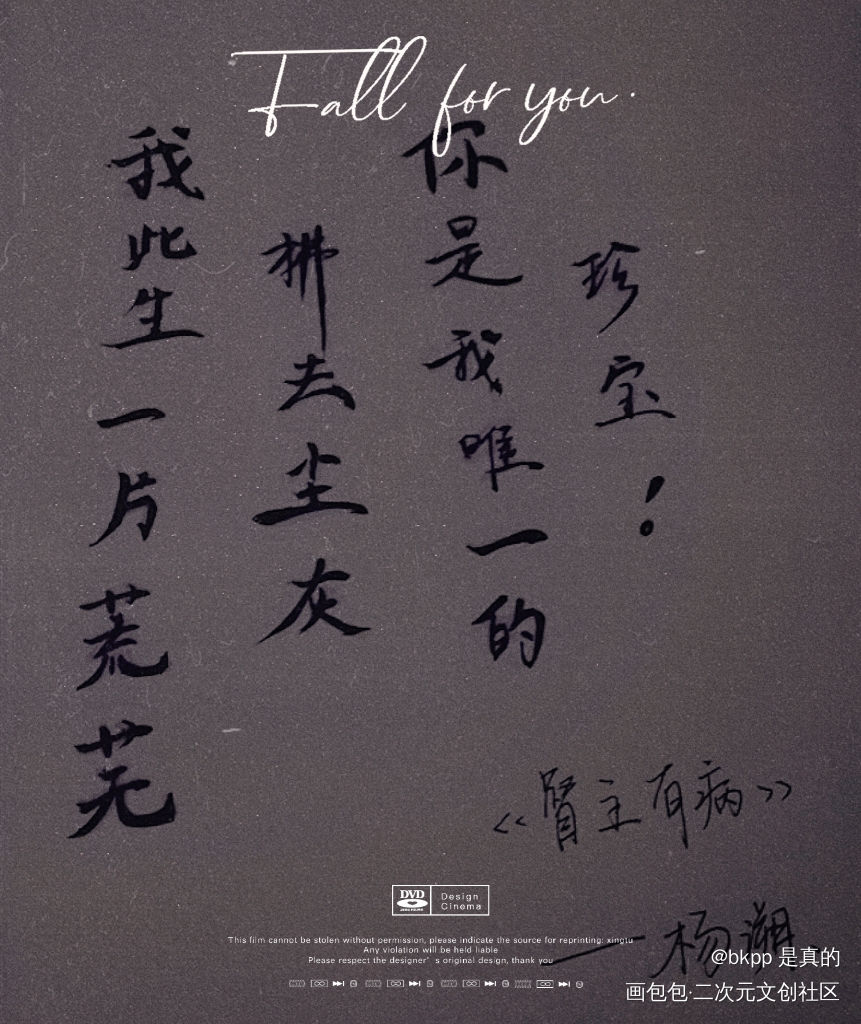 Fall for you.
我此生一片荒芜
拂去尘灰
你是我唯一的
珍宝！
《肾主有病》
DVD
Design
Cinema
This film cannot be stolen without permission, please indicate the source for reprinting: xingtu
Any violation will be held liable
Please respect the designer’s original design, thank you
——杨溯
@bkpp 是真的
画包包·二次元文创社区